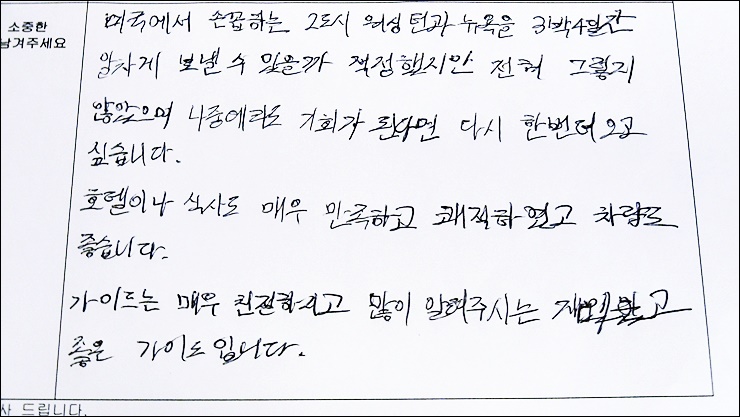 소중한
남겨주세요
미국에서 손꼽하는 2도시 워싱턴과 뉴욕을 3박4일간
알차게 보낼 수 있을까 걱정했지만 전혀 그렇지
않았으며 나중에라도 기회가 된다면 다시 한번더 오고
싶습니다.
호텔이나 식사도 매우 만족하고 쾌적하였고 차량도
좋습니다.
가이드는 매우 친절하시고 많이 알려주시는 재밌고
좋은 가이드입니다.
사 드립니다.